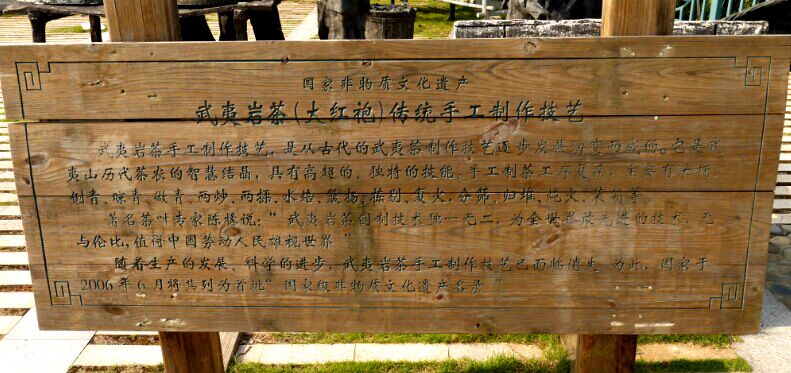 国家非物质文化遗产
武夷岩茶(大红袍)传统手工制作技艺
武夷岩茶手工制作技艺，是从古代的武夷茶制作技艺逐步发展演变而成的。它是武
夷山历代茶农的智慧结晶，具有高超的、独特的技能。手工制茶工序复杂，主要有采摘、
倒青、晾青、做青、两炒、两揉、水焙、簸扬、拣剔、复火、分筛、归堆、炖火、装箱等。
著名茶叶专家陈椽说：“武夷岩茶创制技术独一无二，为全世界最先进的技术，无
与伦比，值得中国劳动人民雄视世界”。
随着生产的发展、科学的进步，武夷岩茶手工制作技艺已面临消失。为此，国家于
2006年6月将其列为首批“国家级非物质文化遗产名录”